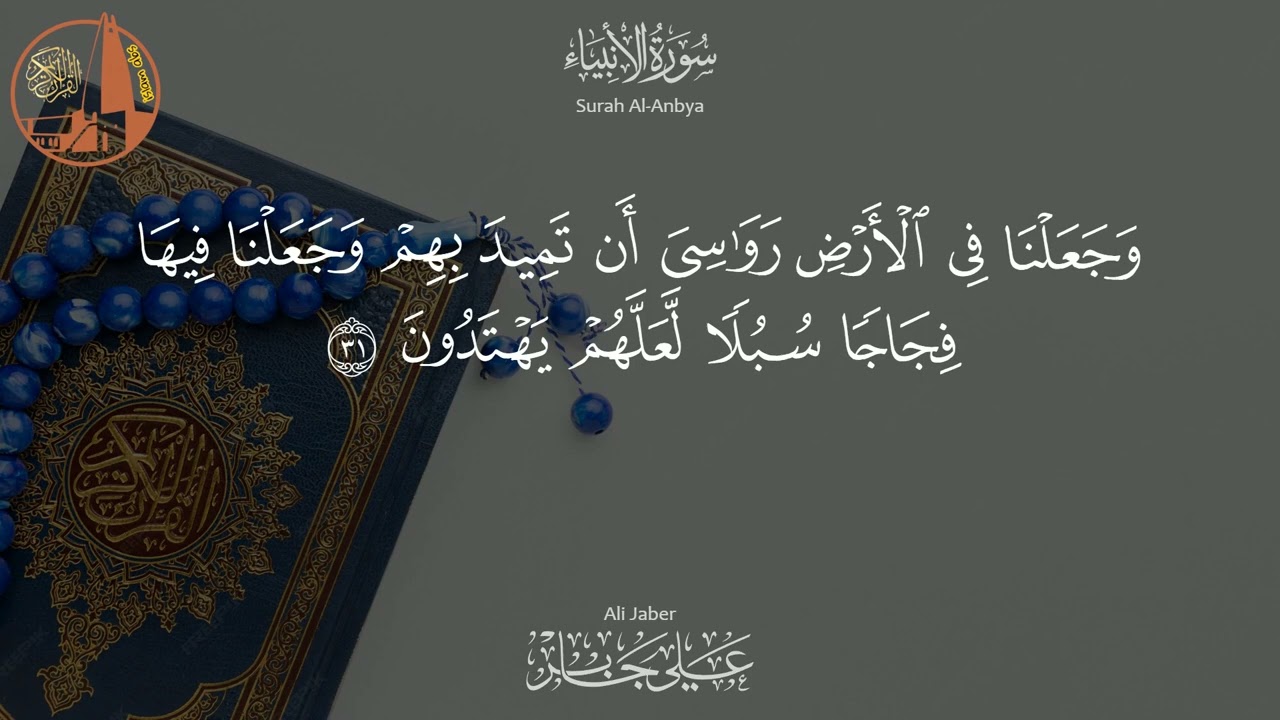 القرآن الكريم
سُورَةُ الْأَنْبِيَاءِ
Surah Al-Anbya
وَجَعَلْنَا فِي ٱلْأَرْضِ رَوَٰسِيَ أَن تَمِيدَ بِهِمْ وَجَعَلْنَا فِيهَا
فِجَاجًا سُبُلًا لَّعَلَّهُمْ يَهْتَدُونَ ٣١
القرآن الكريم
Ali Jaber
عَلِي جَابِر